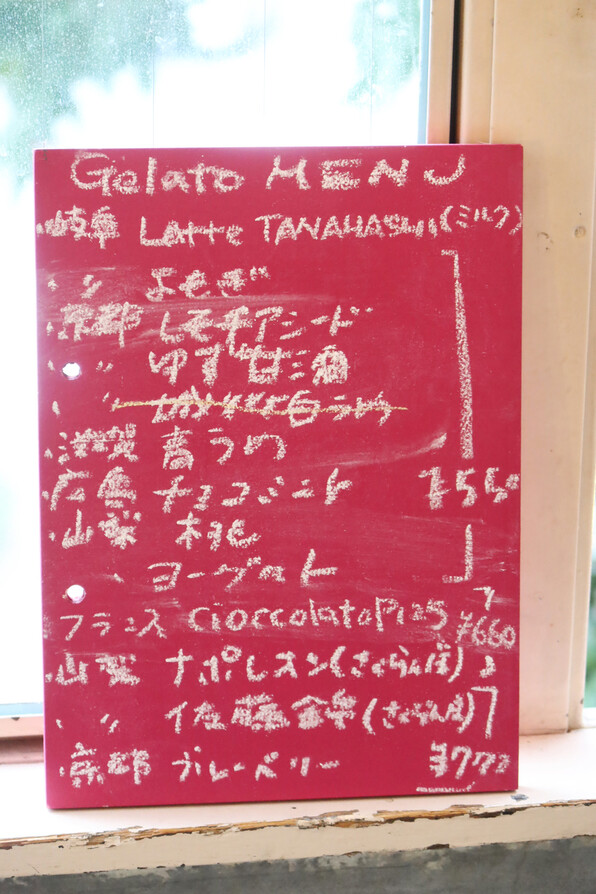 Gelato MENU
・岐阜 Latte TANAHASHI(ミルク)
・〃 よもぎ
・京都 レモンチアシード
・〃 ゆず甘酒
・〃 城州白うめ
・滋賀 青うめ
・広島 チョコミント ¥550
・山梨 桃
・ヨーグルト
フランス CioccolatoPur5 ¥660
・山梨 ナポレオン(さくらんぼ)
・〃 佐藤錦(さくらんぼ)
・京都 ブルーベリー ¥770